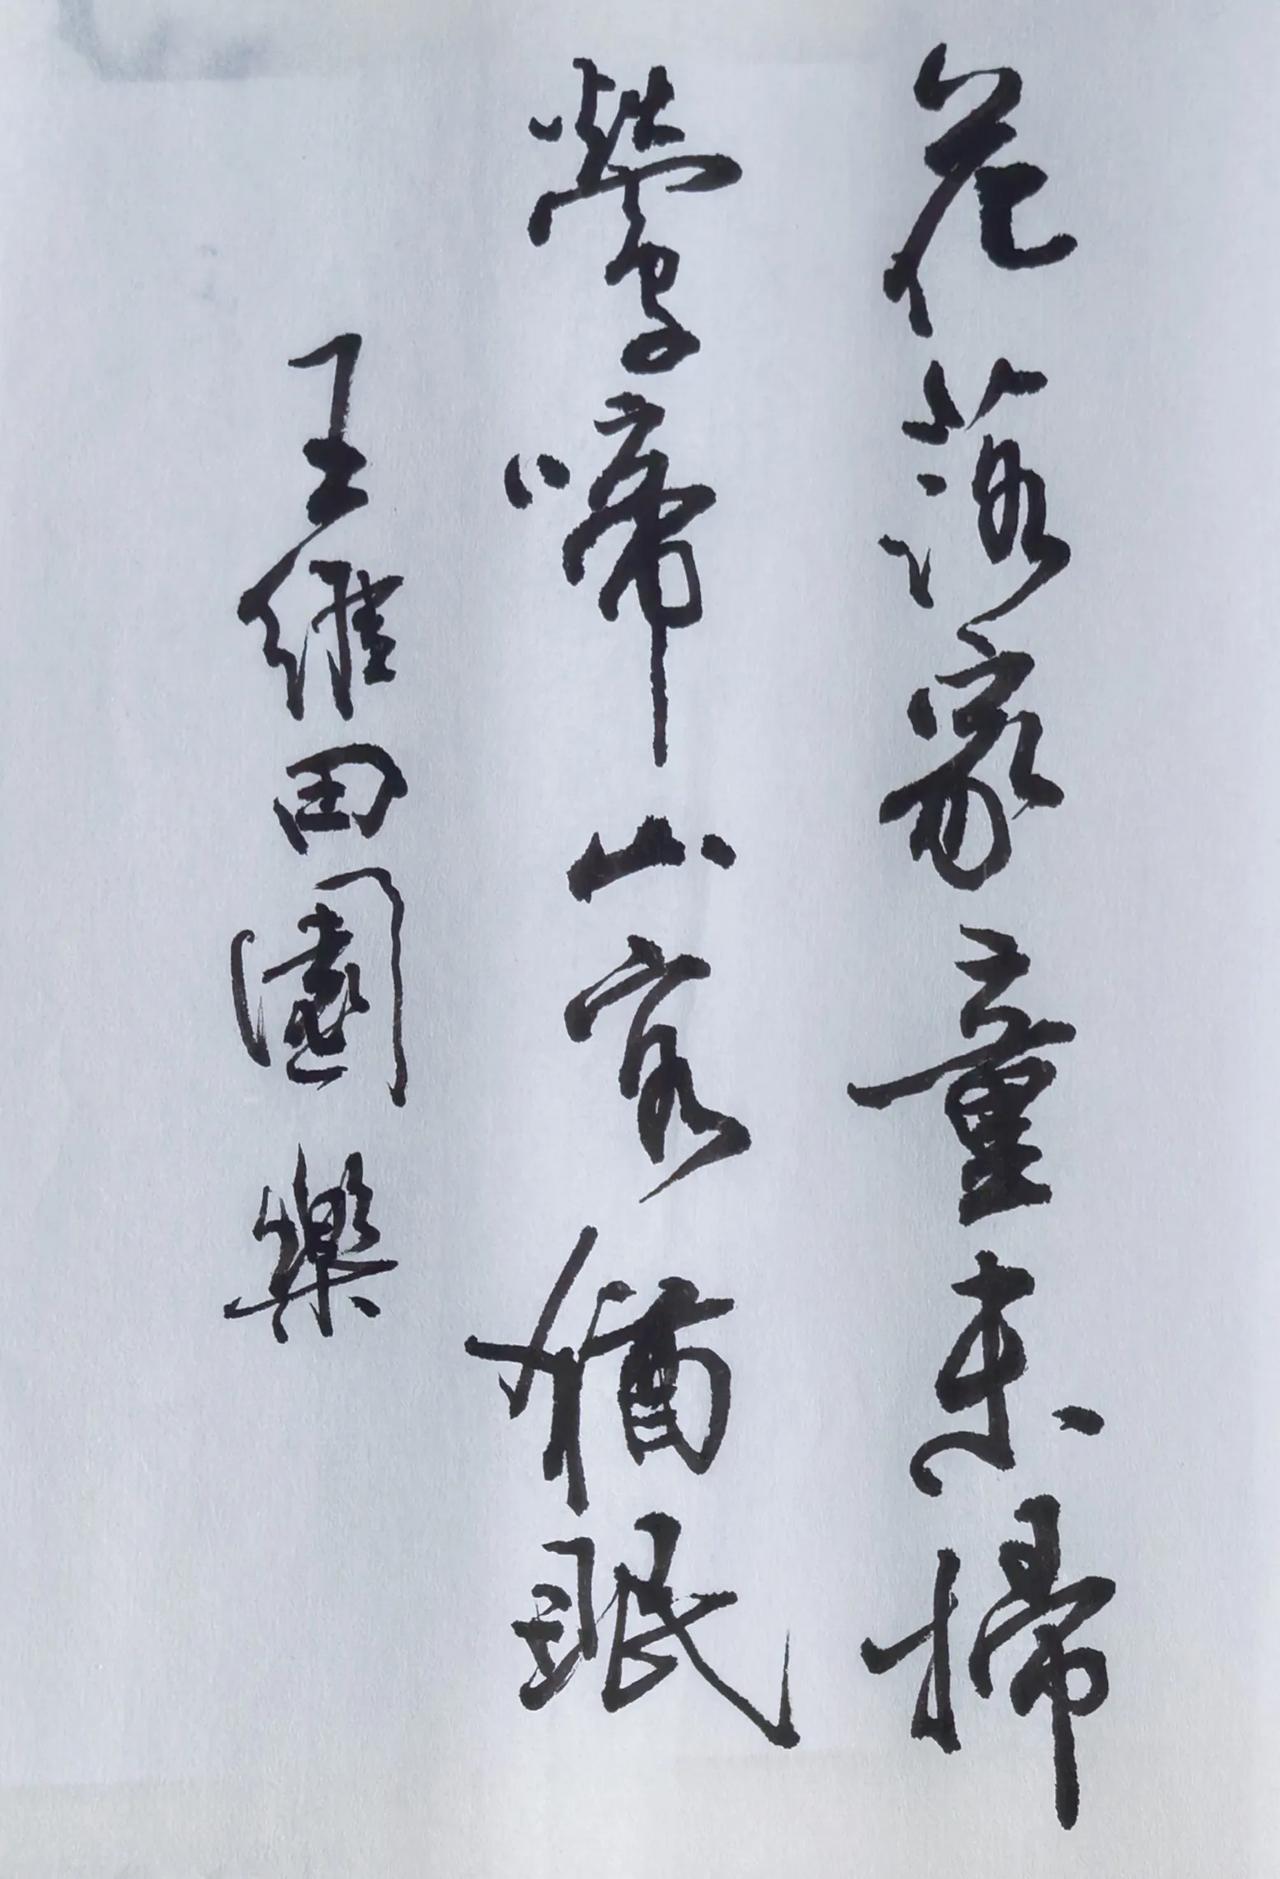 花落家童未掃
鶯啼山客猶眠
王維田園樂